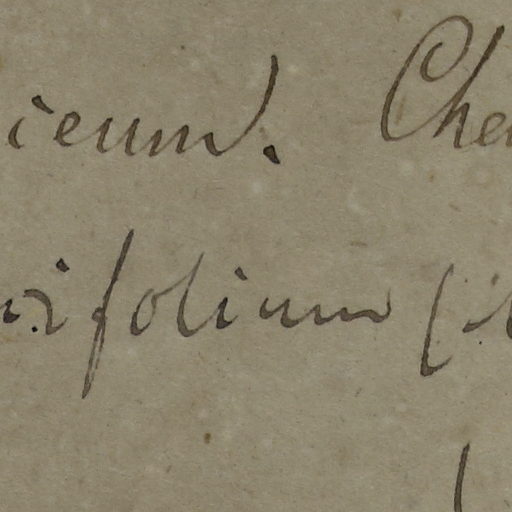 iceum. Che
rifolium (it